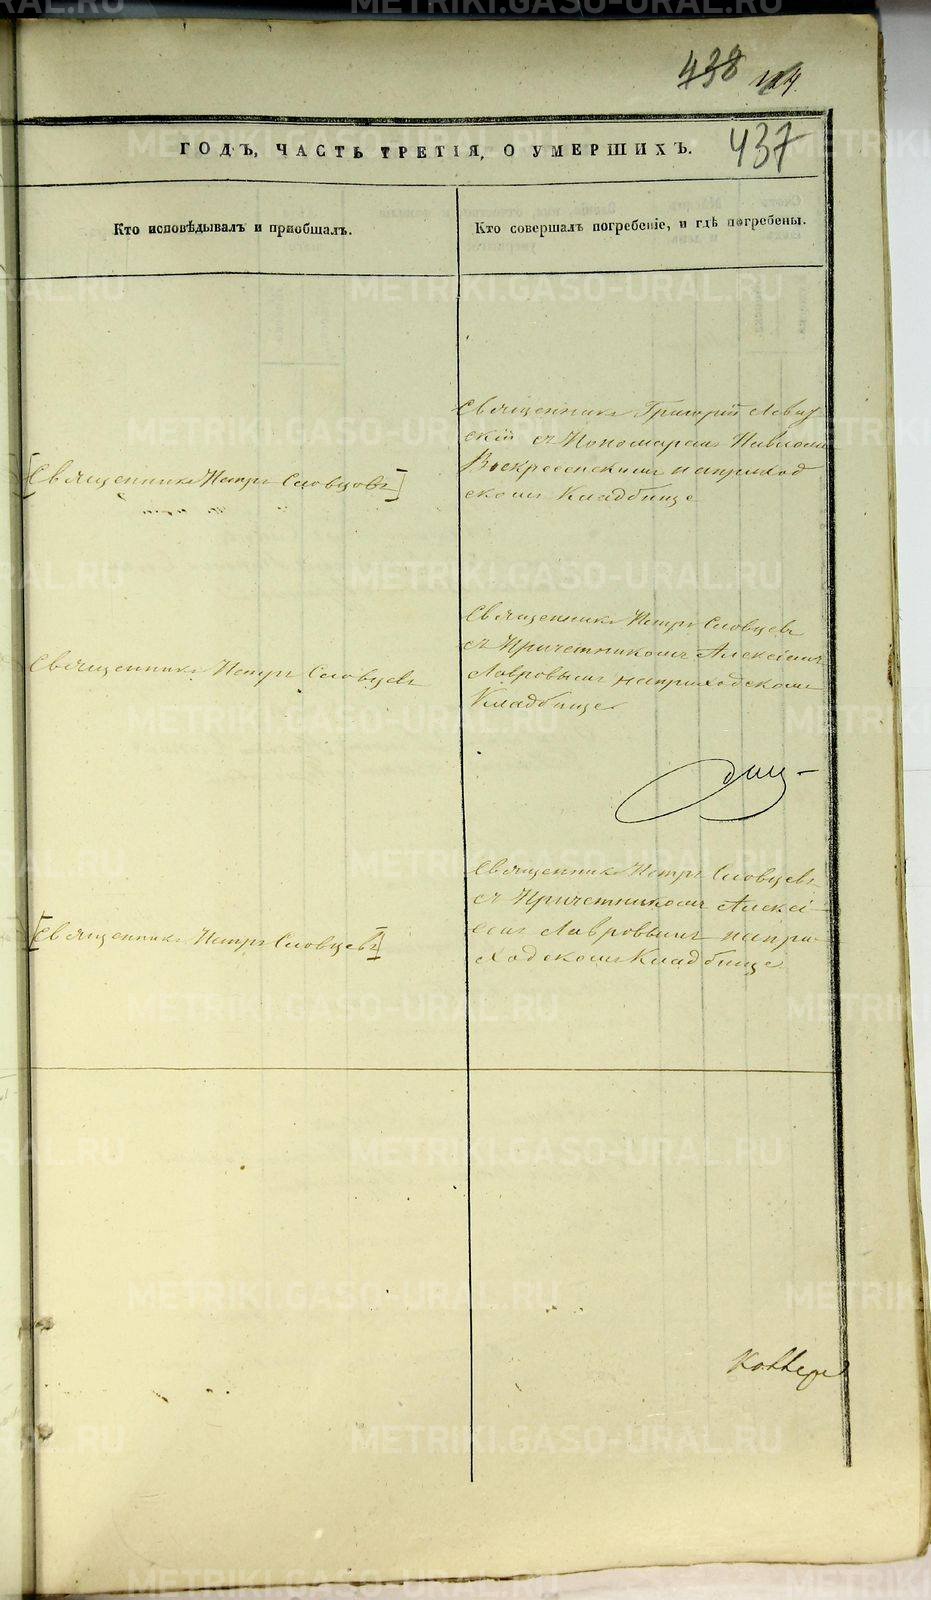 438
437
ГОДЪ, ЧАСТЬ ТРЕТІЯ, О УМЕРШИХЪ.
Кто исповѣдывалъ и приобщалъ.
Кто совершалъ погребеніе, и гдѣ погребены.
Священникъ Григорій Левиц
кій съ Пономаремъ Павломъ
Воскресенскимъ на приход
скомъ Кладбище
[Священникъ Петръ Словцовъ]
Священникъ Петръ Словцевъ
съ Причетникомъ Алексіемъ
Лавровымъ на приходскомъ
Кладбище
Священникъ Петръ Словцевъ
Священникъ Петръ Словцевъ
съ Причетникомъ Алексі-
емъ Лавровымъ на при-
ходскомъ Кладбище
[Священникъ Петръ Словцевъ]
METRIKI.GASO-URAL.RU